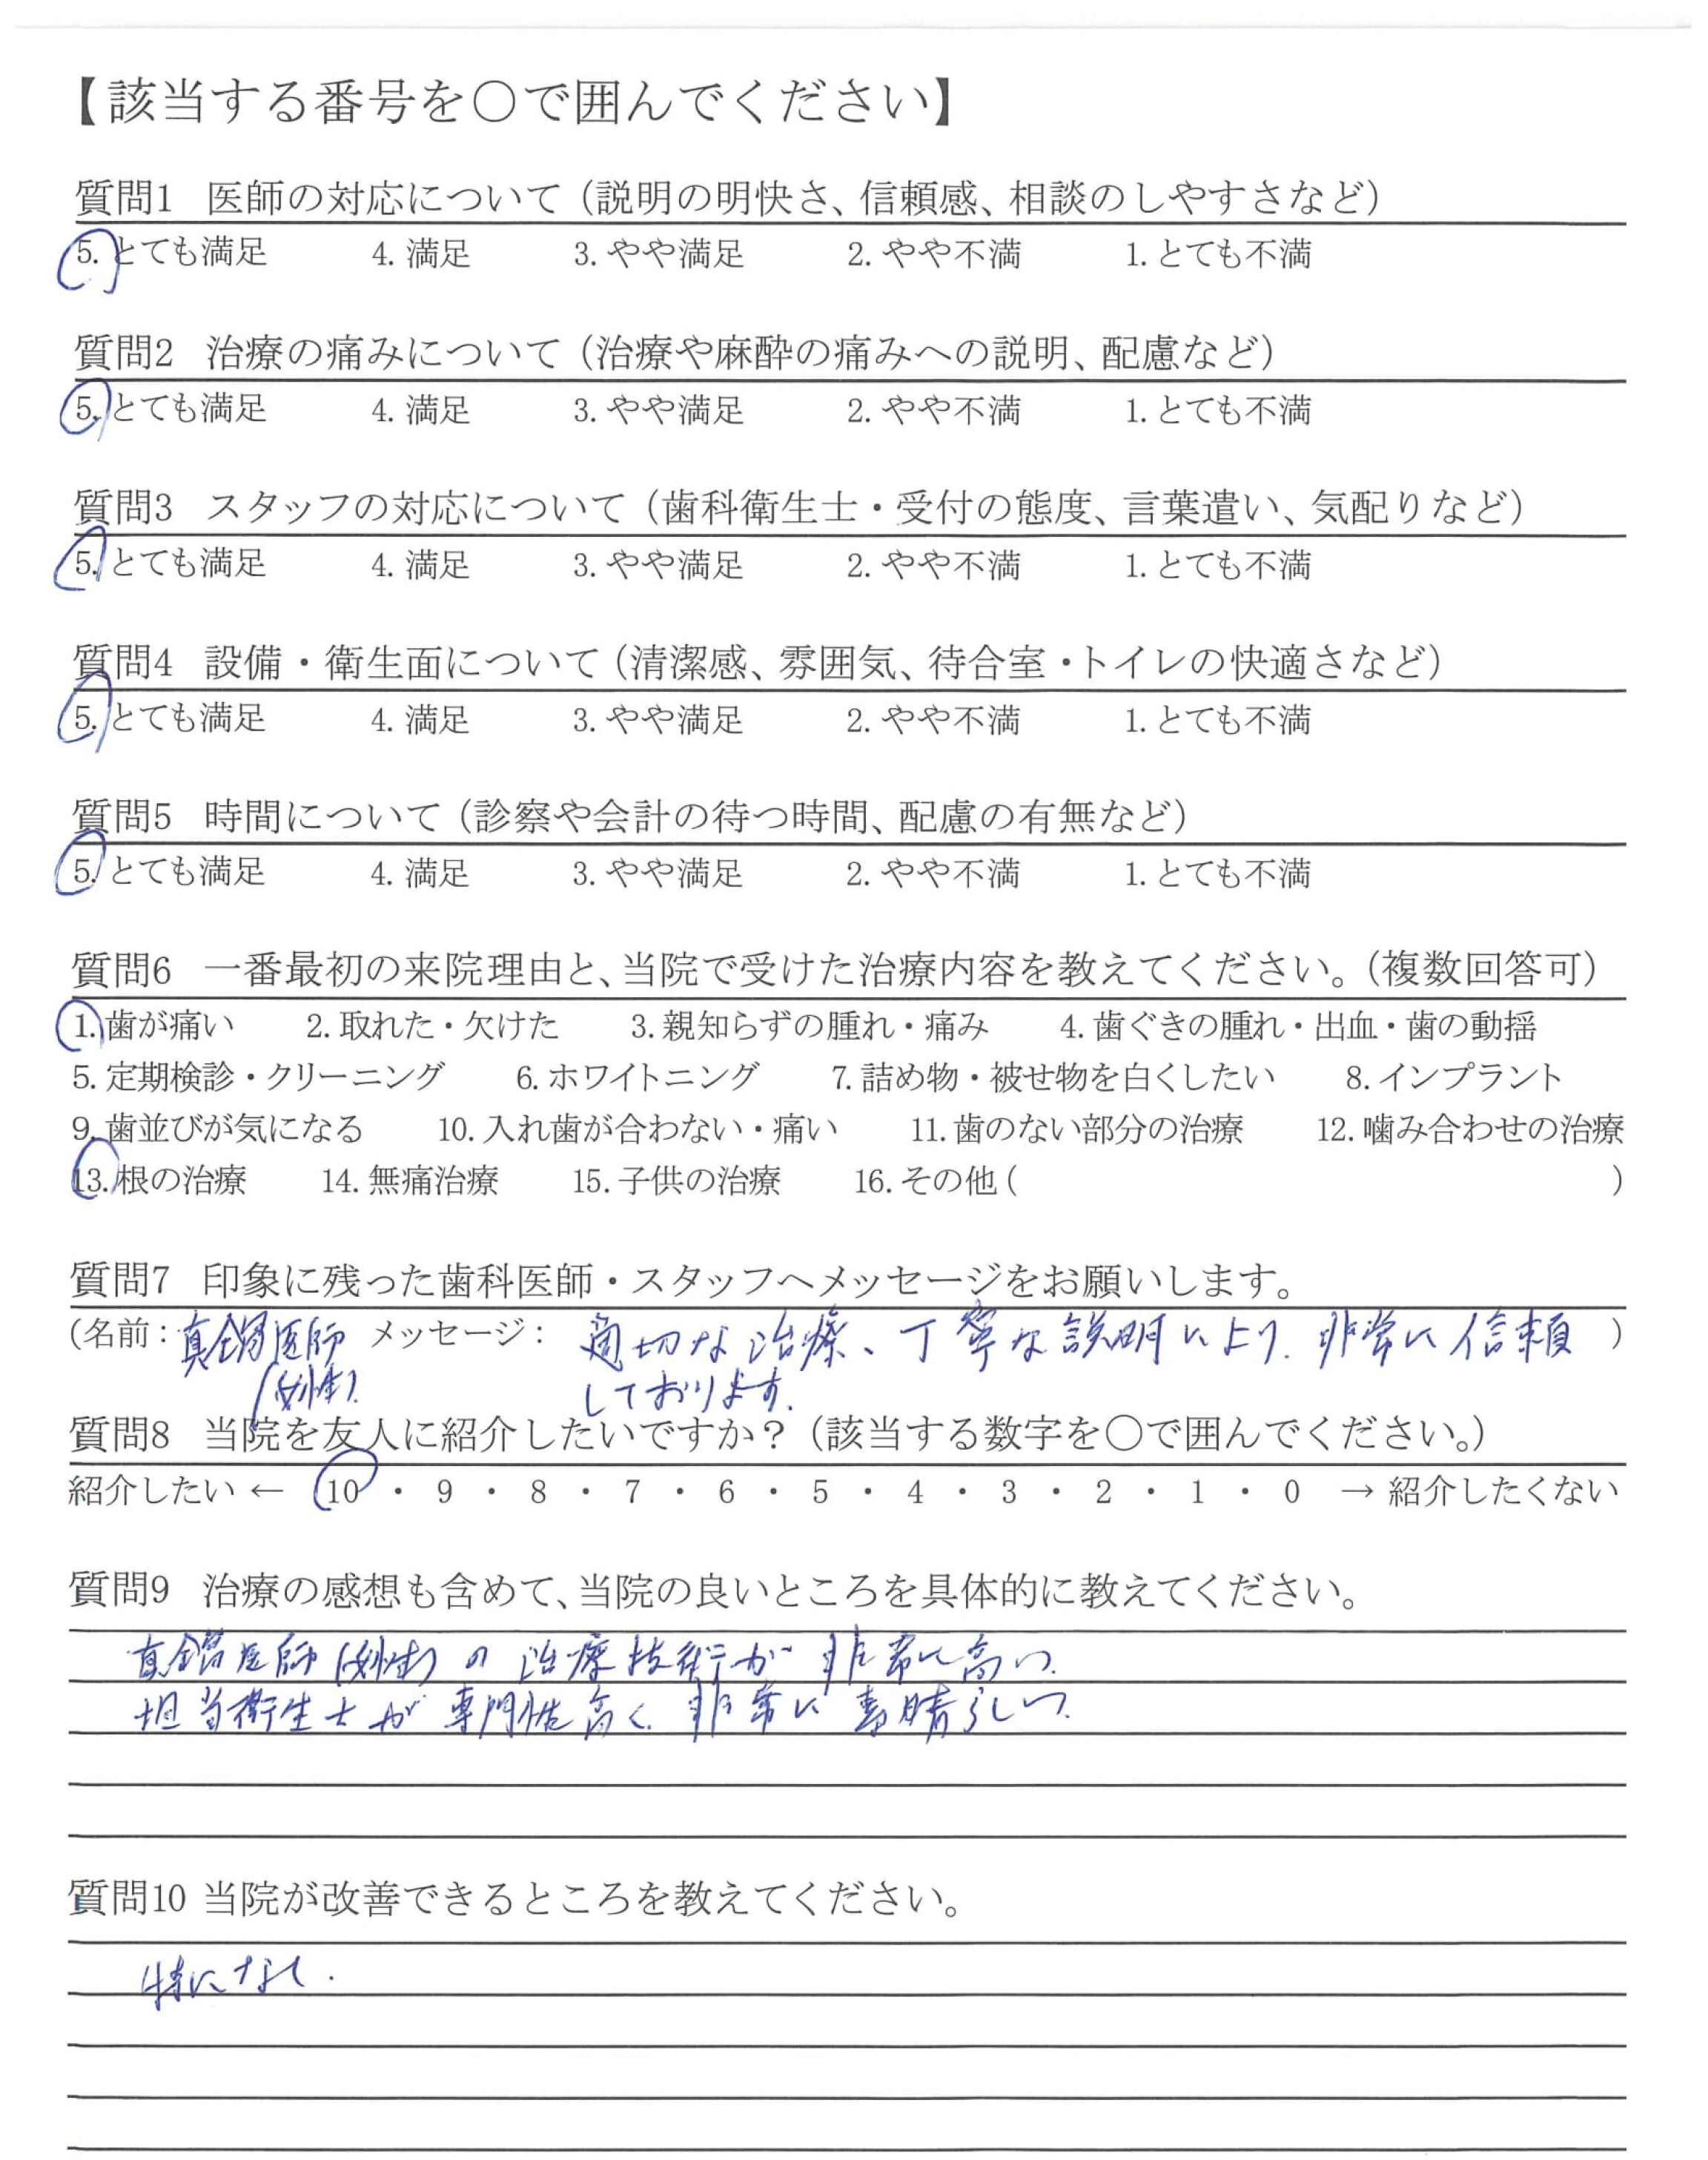 【該当する番号を○で囲んでください】
質問1 医師の対応について（説明の明快さ、信頼感、相談のしやすさなど）
5. とても満足 4. 満足 3. やや満足 2. やや不満 1. とても不満
質問2 治療の痛みについて（治療や麻酔の痛みへの説明、配慮など）
5. とても満足 4. 満足 3. やや満足 2. やや不満 1. とても不満
質問3 スタッフの対応について（歯科衛生士・受付の態度、言葉遣い、気配りなど）
5. とても満足 4. 満足 3. やや満足 2. やや不満 1. とても不満
質問4 設備・衛生面について（清潔感、雰囲気、待合室・トイレの快適さなど）
5. とても満足 4. 満足 3. やや満足 2. やや不満 1. とても不満
質問5 時間について（診察や会計の待つ時間、配慮の有無など）
5. とても満足 4. 満足 3. やや満足 2. やや不満 1. とても不満
質問6 一番最初の来院理由と、当院で受けた治療内容を教えてください。（複数回答可）
1. 歯が痛い 2. 取れた・欠けた 3. 親知らずの腫れ・痛み 4. 歯ぐきの腫れ・出血・歯の動揺
5. 定期検診・クリーニング 6. ホワイトニング 7. 詰め物・被せ物を白くしたい 8. インプラント
9. 歯並びが気になる 10. 入れ歯が合わない・痛い 11. 歯のない部分の治療 12. 噛み合わせの治療
13. 根の治療 14. 無痛治療 15. 子供の治療 16. その他（ ）
質問7 印象に残った歯科医師・スタッフへメッセージをお願いします。
（名前：医師 メッセージ： 適切な治療、丁寧な説明により、非常に信頼 ）
(女性) しております.
質問8 当院を友人に紹介したいですか？（該当する数字を○で囲んでください。）
紹介したい ← 10 ・ 9 ・ 8 ・ 7 ・ 6 ・ 5 ・ 4 ・ 3 ・ 2 ・ 1 ・ 0 → 紹介したくない
質問9 治療の感想も含めて、当院の良いところを具体的に教えてください。
医師(女性)の治療技術が非常に高い.
担当衛生士が専門性高く、非常に素晴らしい.
質問10 当院が改善できるところを教えてください。
特になし.